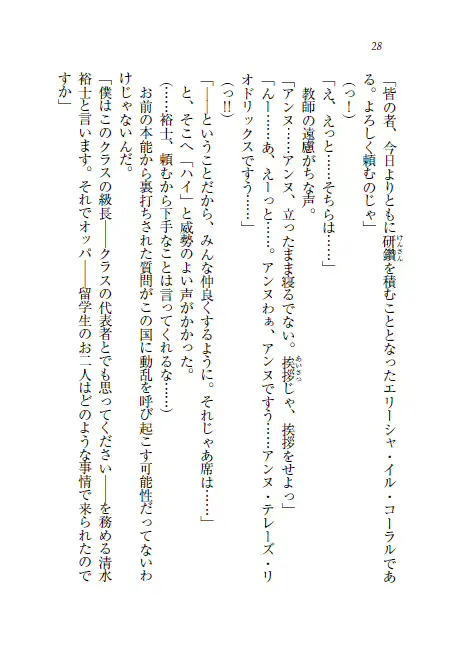 28
「皆の者、今日よりともに研鑽を積むこととなったエリーシャ・イル・コーラルであ
る。よろしく頼むのじゃ」
(っ！)
「え、えっと……そちらは……」
教師の遠慮がちな声。
「アンヌ……アンヌ、立ったまま寝るでない。挨拶じゃ、挨拶をせよっ」
「んー……あ、えーっと……。アンヌわぁ、アンヌですう……アンヌ・テレーズ・リ
オドリックスですう……」
(っ!!)
「――ということだから、みんな仲良くするように。それじゃあ席は……」
と、そこへ「ハイ」と威勢のよい声がかかった。
(……裕士、頼むから下手なことは言ってくれるな……)
お前の本能から裏打ちされた質問がこの国に動乱を呼び起こす可能性だってないわ
けじゃないんだ。
「僕はこのクラスの級長――クラスの代表者とでも思ってください――を務める清水
裕士と言います。それでオッパ――留学生のお二人はどのような事情で来られたので
すか」